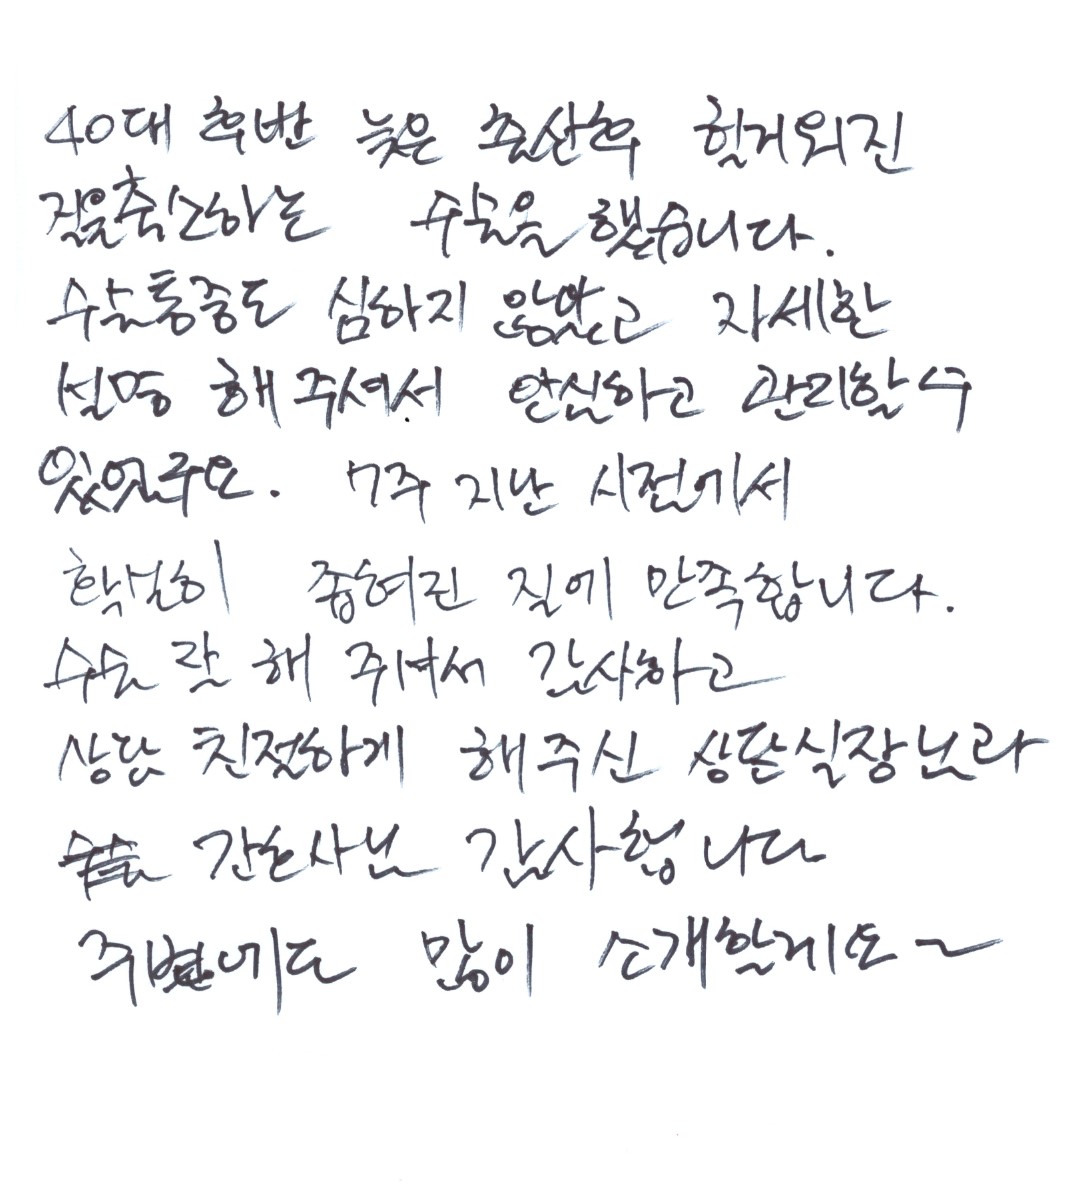 40대 후반 늦은 출산후 헐거워진
질을축소하는 수술을 했습니다.
수술통증도 심하지 않았고 자세한
설명 해 주셔서 안심하고 관리할 수
있었구요. 7주 지난 시점에서
확실히 좁혀진 질에 만족합니다.
수술 잘 해 주셔서 감사하고
상담 친절하게 해주신 상담실장님과
간호사님 감사합니다
주변에도 많이 소개할게요~